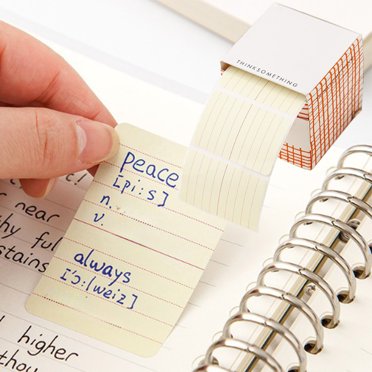 THINKSOMETHING
peace
[pi:s]
n.
v.
always
['ɔ:lweiz]
near
thy ful
stains
higher
thou